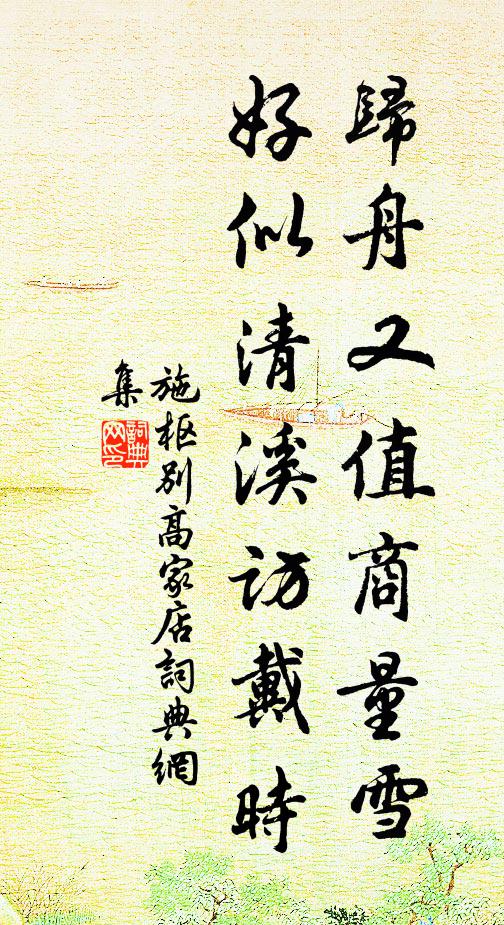 歸舟又值商量雪
好似清溪訪戴時
施枢别高家店詞典網
集
詞典
网印